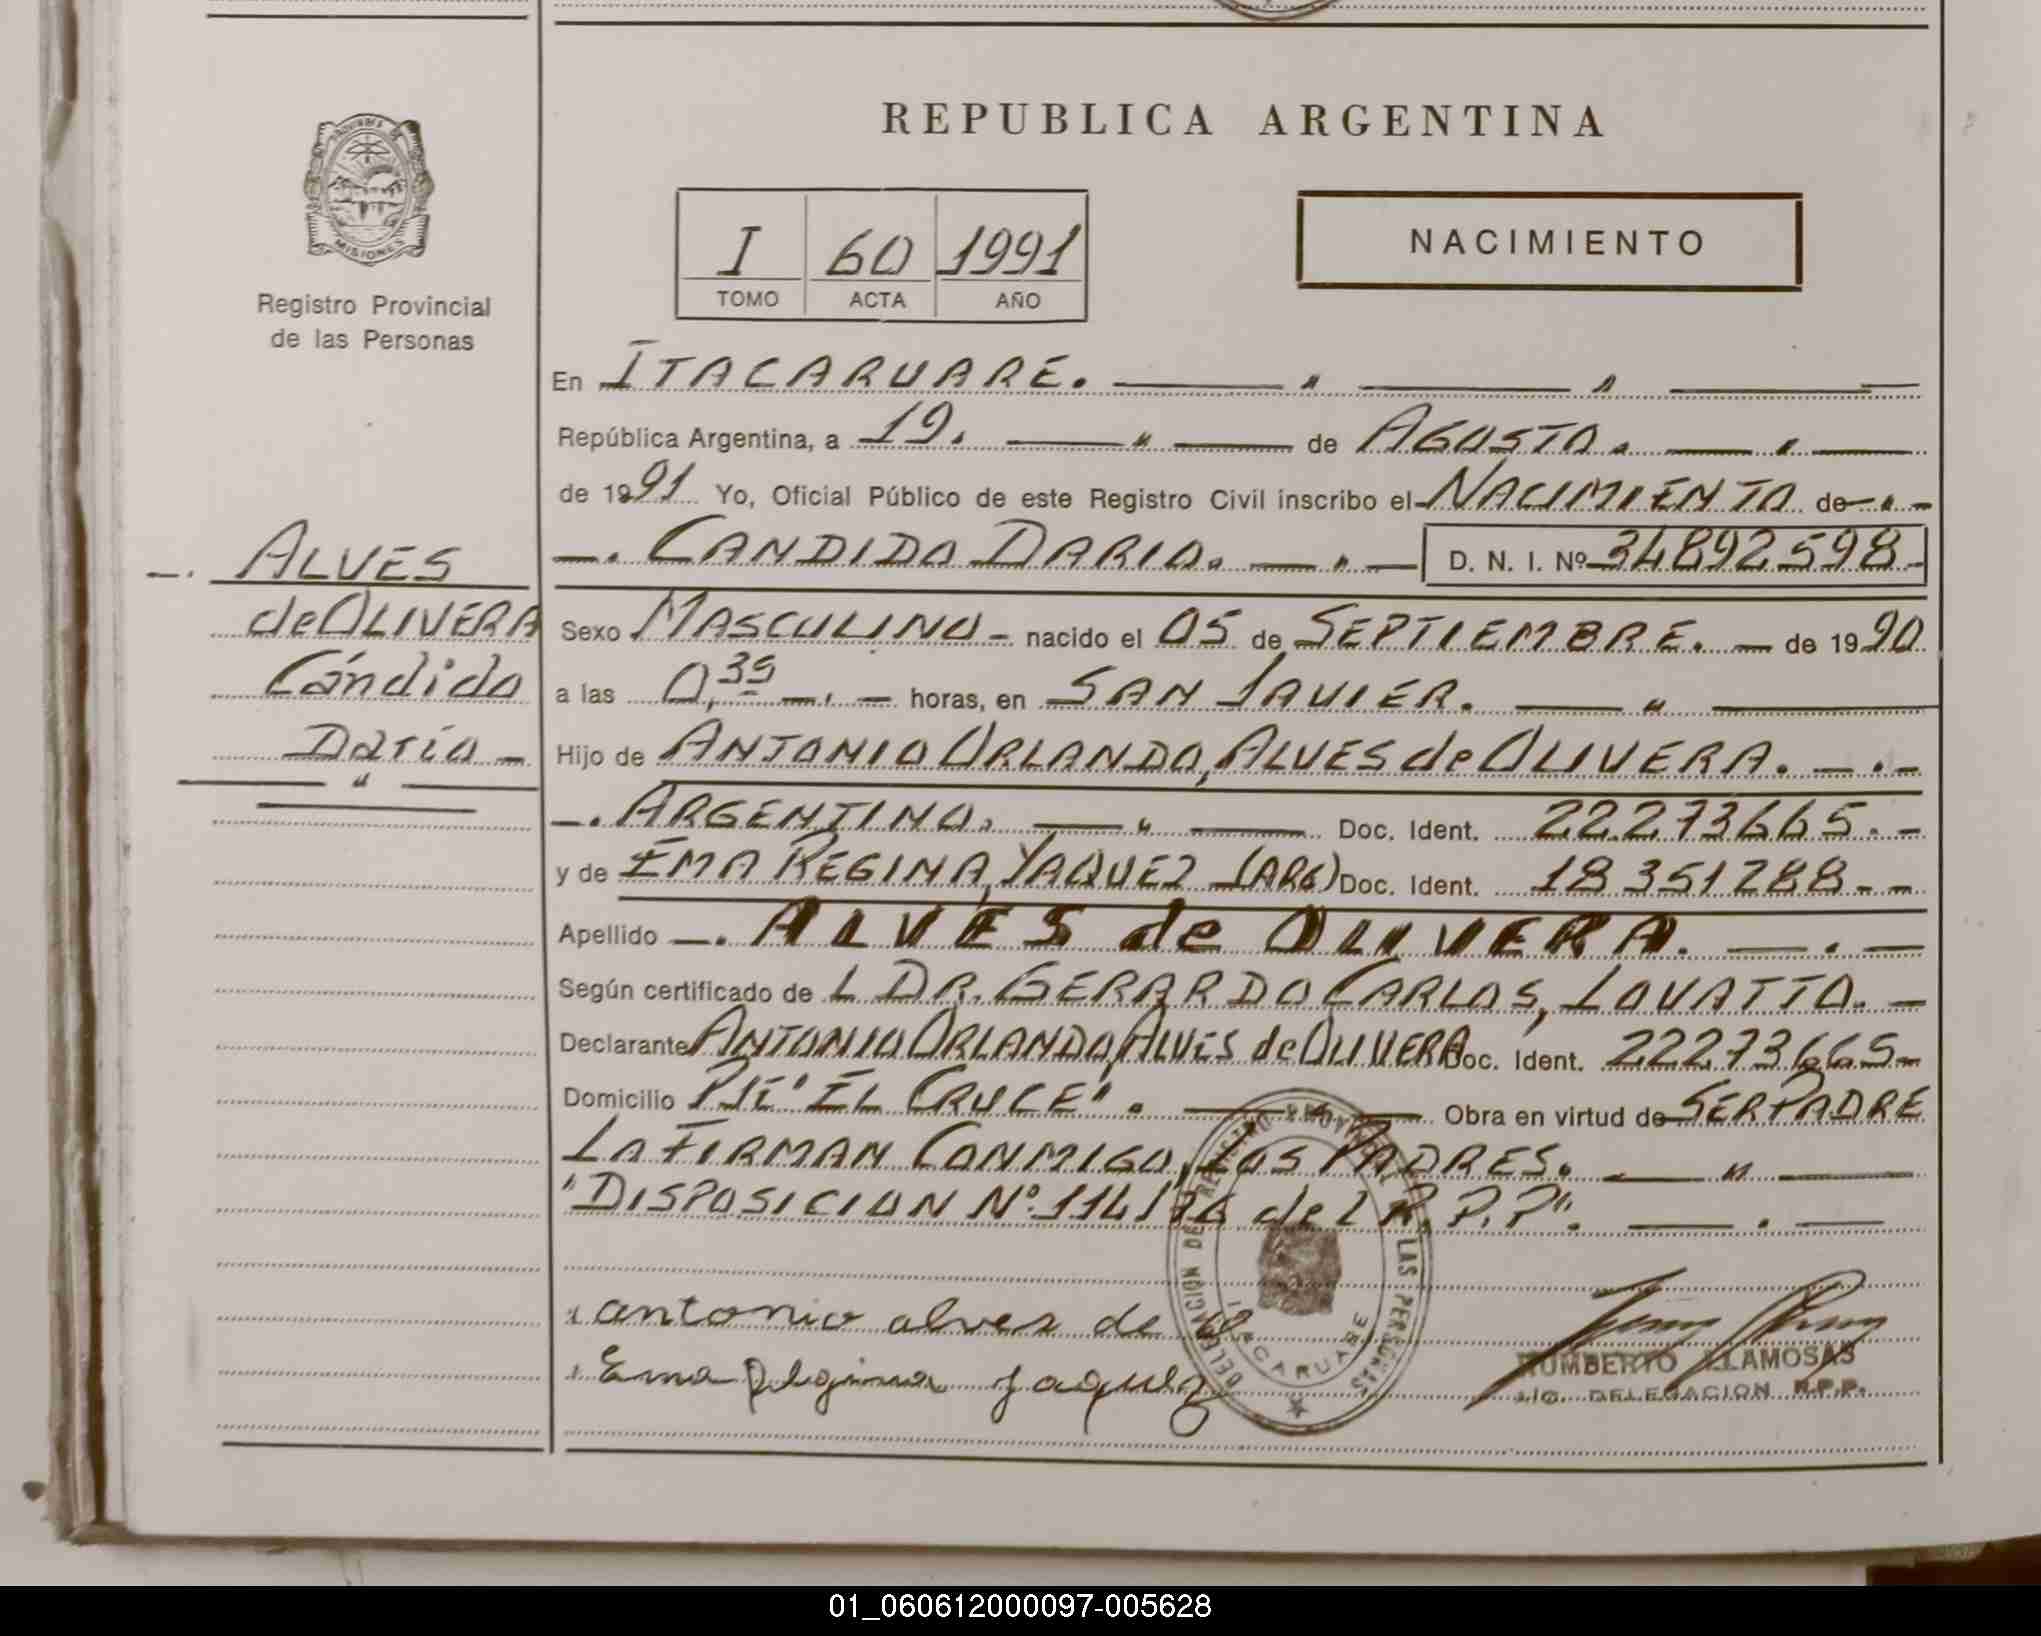 REPUBLICA ARGENTINA
PROVINCIA DE
MISIONES
Registro Provincial
de las Personas
I 60 1991
TOMO ACTA AÑO
NACIMIENTO
En ITACARUARE.
República Argentina, a 19. de AGOSTO.
de 1991 Yo, Oficial Público de este Registro Civil inscribo el NACIMIENTO de
CANDIDO DARIO. D. N. I. Nº 34892598
ALVES
de OLIVERA
Cándido
Darío
Sexo MASCULINO nacido el 05 de SEPTIEMBRE. de 1990
a las 0,39 horas, en SAN JAVIER.
Hijo de ANTONIO ORLANDO, ALVES de OLIVERA.
ARGENTINO. Doc. Ident. 22273665.
y de EMA REGINA, YAQUEZ (ARG) Doc. Ident. 18351288
Apellido ALVES de OLIVERA.
Según certificado de L DR. GERARDO CARLOS, LOVATTO.
Declarante ANTONIO ORLANDO, ALVES de OLIVERA Doc. Ident. 22273665
Domicilio PJE "EL CRUCE". Obra en virtud de SER PADRE
LA FIRMAN CONMIGO, LOS PADRES.
"DISPOSICION Nº 114/76 del R.P.P".
antonio alves de O
Ema Regina Jaquez
DELEGACION DEL REGISTRO PROVINCIAL DE LAS PERSONAS
ITACARUARE
HUMBERTO LLAMOSAS
DELEGACION R.P.P.
01_060612000097-005628